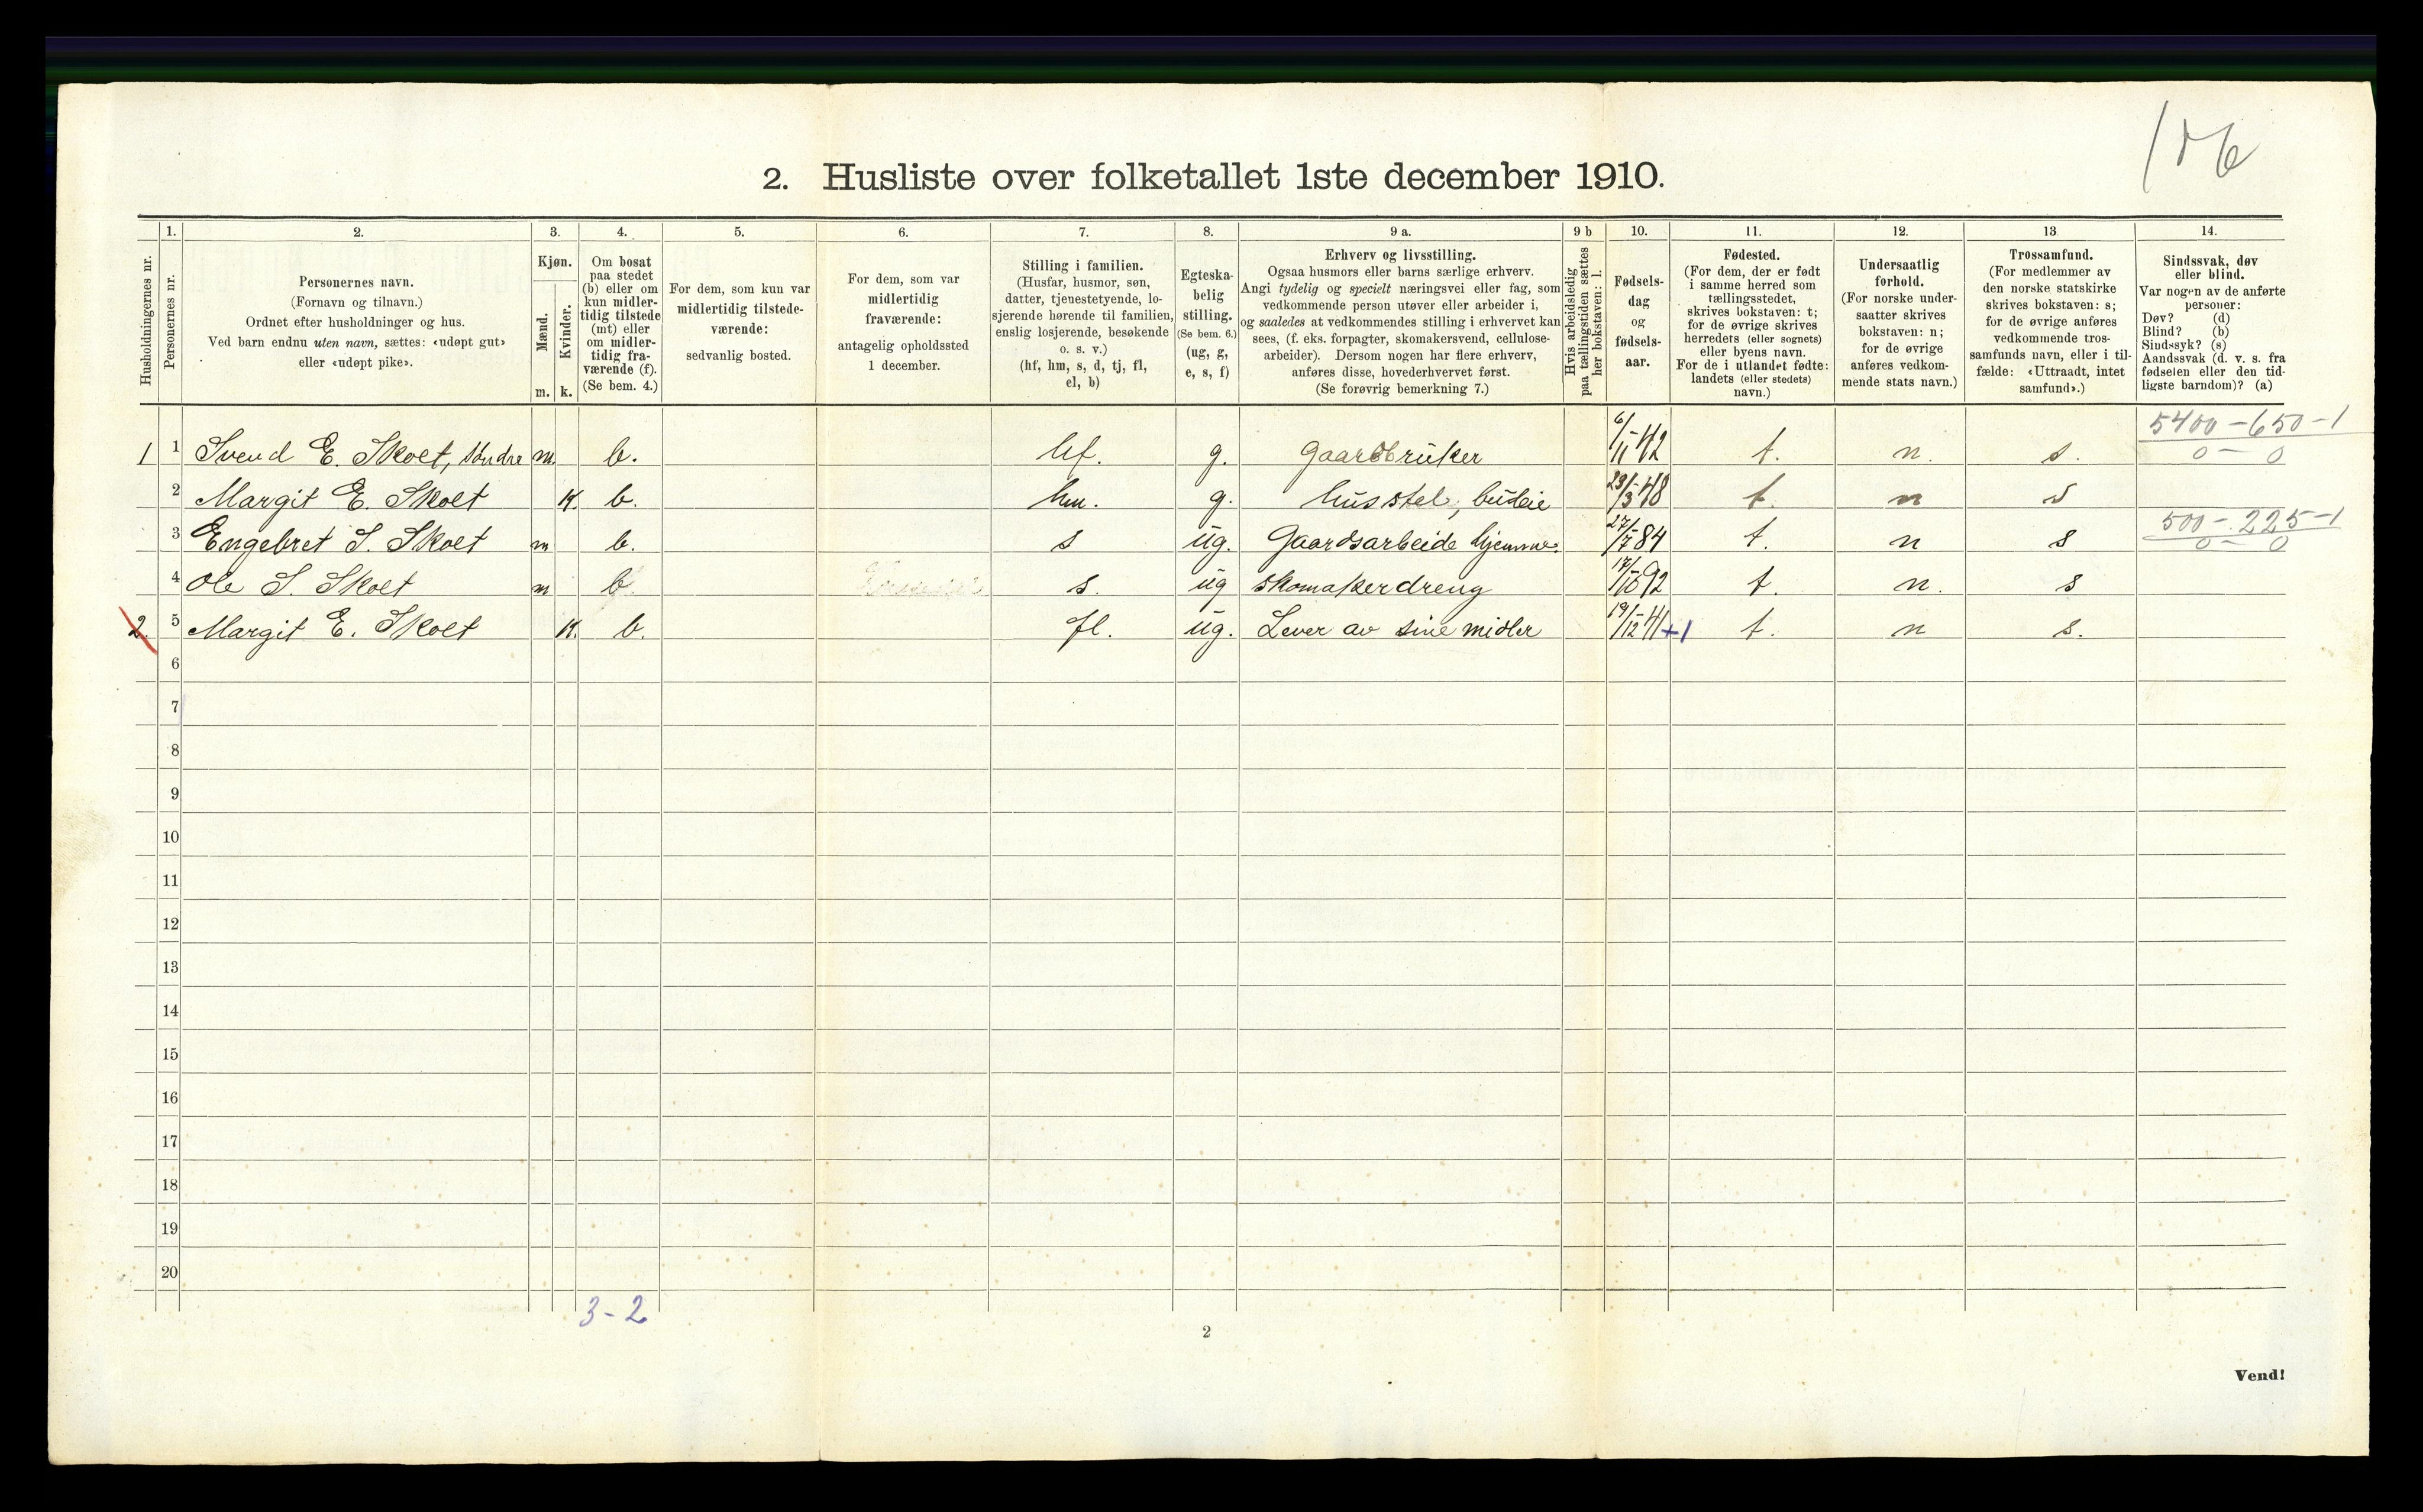 106
2. Husliste over folketallet 1ste december 1910.
Husholdningernes nr.
1.
Personernes nr.
2.
Personernes navn.
(Fornavn og tilnavn.)
Ordnet efter husholdninger og hus.
Ved barn endnu uten navn, sættes: «udøpt gut»
eller «udøpt pike».
3.
Kjøn.
Mænd.
m.
Kvinder.
k.
4.
Om bosat
paa stedet
(b) eller om
kun midler-
tidig tilstede
(mt) eller
om midler-
tidig fra-
værende (f).
(Se bem. 4.)
5.
For dem, som kun var
midlertidig tilstede-
værende:
sedvanlig bosted.
6.
For dem, som var
midlertidig
fraværende:
antagelig opholdssted
1 december.
7.
Stilling i familien.
(Husfar, husmor, søn,
datter, tjenestetyende, lo-
sjerende hørende til familien,
enslig losjerende, besøkende
o. s. v.)
(hf, hm, s, d, tj, fl,
el, b)
8.
Egteska-
belig
stilling.
(Se bem. 6.)
(ug, g,
e, s, f)
9 a.
Erhverv og livsstilling.
Ogsaa husmors eller barns særlige erhverv.
Angi tydelig og specielt næringsvei eller fag, som
vedkommende person utøver eller arbeider i,
og saaledes at vedkommendes stilling i erhvervet kan
sees, (f. eks. forpagter, skomakersvend, cellulose-
arbeider). Dersom nogen har flere erhverv,
anføres disse, hovederhvervet først.
(Se forøvrig bemerkning 7.)
9 b
Hvis arbeidsledig
paa tællingstiden sættes
her bokstaven: l.
10.
Fødsels-
dag
og
fødsels-
aar.
11.
Fødested.
(For dem, der er født
i samme herred som
tællingsstedet,
skrives bokstaven: t;
for de øvrige skrives
herredets (eller sognets)
eller byens navn.
For de i utlandet fødte:
landets (eller stedets)
navn.)
12.
Undersaatlig
forhold.
(For norske under-
saatter skrives
bokstaven: n;
for de øvrige
anføres vedkom-
mende stats navn.)
13
Trossamfund.
(For medlemmer av
den norske statskirke
skrives bokstaven: s;
for de øvrige anføres
vedkommende tros-
samfunds navn, eller i til-
fælde: «Uttraadt, intet
samfund».)
14.
Sindssvak, døv
eller blind.
Var nogen av de anførte
personer:
Døv? (d)
Blind? (b)
Sindssyk? (s)
Aandssvak (d. v. s. fra
fødselen eller den tid-
ligste barndom)? (a)
5400 - 650 - 1
1 1 Svend E. Skolt, søndre m. b. hf. g. gaardbruker 6/11-42 t. n. s. 0 - 0
2 Margit E. Skolt K. b. hm. g. husstel, budeie 23/3-48 t. n s
500 - 225 - 1
3 Engebret S. Skolt m b. s ug. Gaardsarbeide hjemme. 27/7-84 t. n s 0 - 0
4 Ole S. Skolt m b s. ug skomakerdreng 17/10-92 t. n. s
2. 5 Margit E. Skolt K. b. fl. ug. Lever av sine midler 19/12-41 +1 t. n s.
6
7
8
9
10
11
12
13
14
15
16
17
18
19
20
3-2
2
Vend!